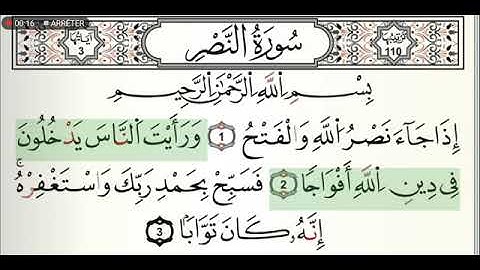 00:16 ■ ARRÊTER
آياتها 3 سُورَةُ النَّصْرِ ترتيبها 110
بِسْمِ اللَّهِ الرَّحْمَٰنِ الرَّحِيمِ
إِذَا جَآءَ نَصْرُ اللَّهِ وَالْفَتْحُ 1 وَرَأَيْتَ النَّاسَ يَدْخُلُونَ
فِي دِينِ اللَّهِ أَفْوَاجًا 2 فَسَبِّحْ بِحَمْدِ رَبِّكَ وَاسْتَغْفِرْهُ ۚ
إِنَّهُۥ كَانَ تَوَّابًۢا 3